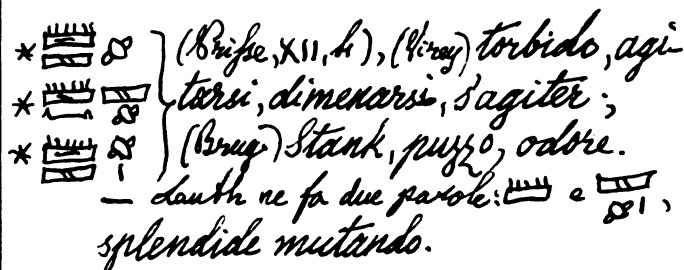 * * * (Prisse, XII, 4), (Virey) torbido, agi-
tarsi, dimenarsi, s'agiter;
(Brug.) Stank, puzzo, odore.
— Lauth ne fa due parole: e ,
splendide mutando.